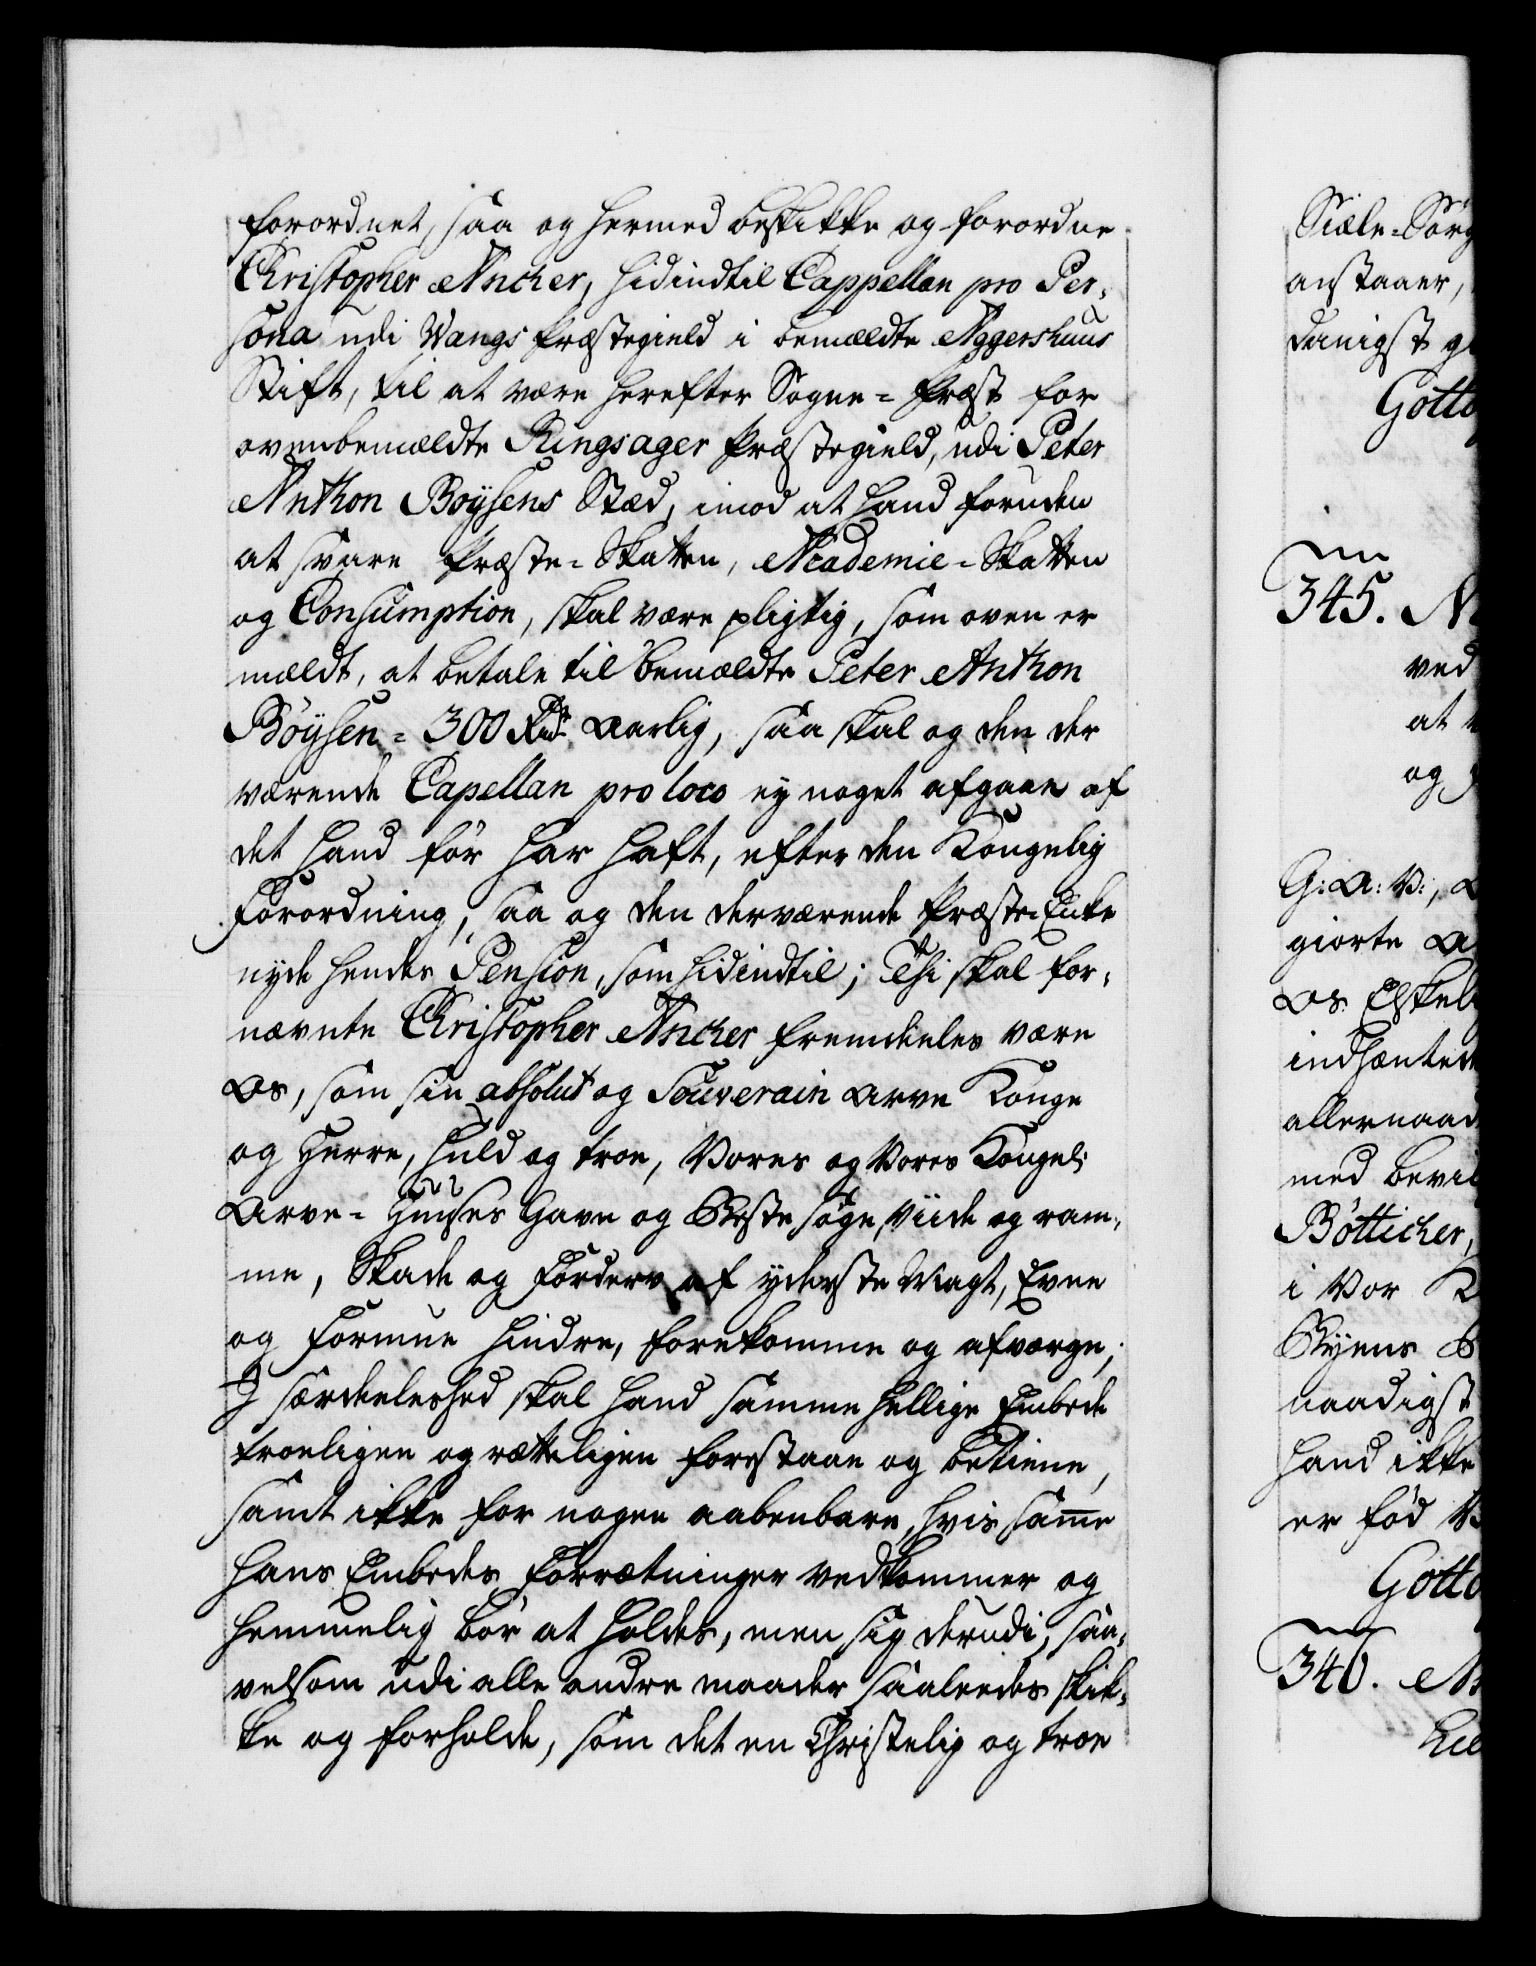 forordnet, saa og hermed beskikke og forordne
Christopher Ancher, hidindtil Cappellan pro Per-
sona udi Wangs Præstegield i bemældte Aggershuus
Stift, til at være herefter Sogne-Præst for
ovenbemældte Ringsager Præstegield, udi Peter
Anthon Boysens Stæd, imod at hand foruden
at svare Præste-Skatten, Academie-Skatten
og Consumption, skal være pligtig, som oven er
mældt, at betale til bemældte Peter Anthon
Böysen = 300 Rdr aarlig, saa skal og den der
værende Capellan pro loco ey noget afgaae af
det hand før har haft, efter den Kongelig
Forordning, saa og den derværende Præste-Enke
nyde hendes Pension, som hidindtil; Thi skal for-
nævnte Christopher Ancher fremdeeles være
Os, som sin absolut og Souverain Arve Konge
og Herre, huld og troe, Vores og Vores Kongel:
Arve-Huuses Gavn og Beste søge, viide og ram-
me, Skade og Forderv af yderste Magt, Evne
og Formue hindre, forekomme og afværge,
I særdeleshed skal hand samme hellige Embede
troeligen og rætteligen forestaae og betiene,
samt ikke for nogen aabenbare, hvis samme
hans Embedes Forrætninger vedkommer og
hemmelig bør at holdes, men sig derudi, saa-
velsom udi alle andre maader saaledes skik-
ke og forholde, som det en Christelig og troe
Siæle-Sørg
anstaaer,
danigst
Gotto
345.
ved
at
og
G: A: V:,
giorte
Os Elskel
indhænted
allernaad
med bevil
Bötticher,
i Vor
Byens
naadigst
hand ikke
er fød
Gotto
346.